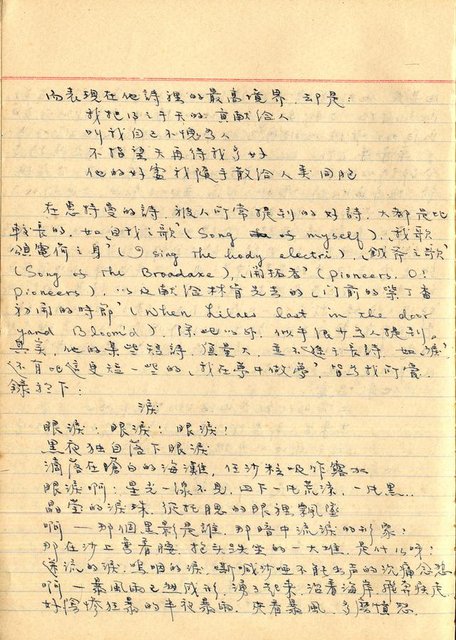 而表現在他詩裡的最高境界，却是：
我把今天的貢献给人
叫我自己不愧為人
不指望天再待我多好
他的好處我隨手散给人类同胞
在惠特曼的詩，被人们常提到的好詩，大都是比
較長的，如「自我之歌」(Song of myself)、「我歌
頌電荷之身」(I sing the body electri)、「鉞斧之歌」
(Song of the Broadaxe)、「開拓者」(Pioneers. O!
Pioneers)，以及献给林肯先生的「门前的紫丁香
初開的時節」(When Lilacs last in the door
yard Bloom'd)，除此以外，似乎很少為人提到。
其实，他的某些短詩，並不遜于長詩，如「淚」
还有比這更短一些的「我在夢中做夢」，
錄於下：
淚
眼淚！眼淚！眼淚！
黑夜独自落下眼淚
滴落在蒼白的海灘，任沙粒吸作露水
眼淚啊！星光一線不見，四下一片荒凉，一片黑…
晶莹的淚珠，從托腮的眼裡飄墜
啊——那個黑影是誰，那暗中流淚的形象？
那在沙上彎着腰，抬头趺坐的一大堆，是什么呀？
奔流的淚，嗚咽的淚，嘶喊沙哑不能出声的沉痛
啊——暴風雨已翅成形，湧了起來，沿着海岸飛奔疾走
好愴惨狂暴的半夜暴雨，夾着暴風，